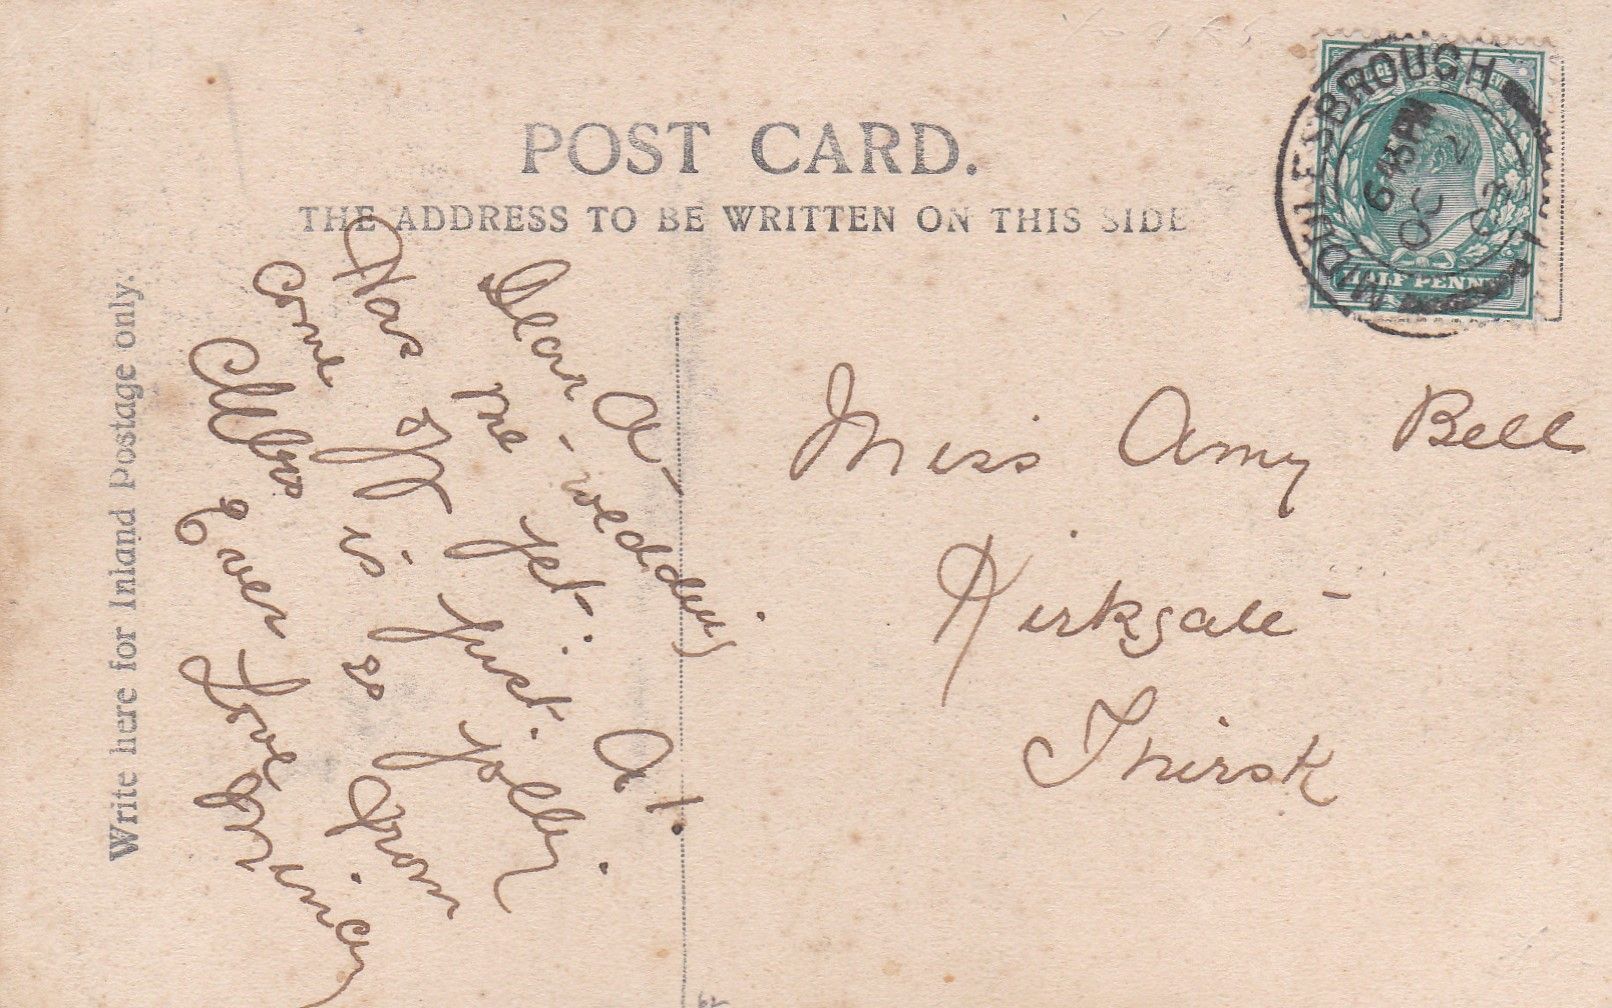 POST CARD.
THE ADDRESS TO BE WRITTEN ON THIS SIDE
Write here for Inland Postage only.
MIDDLESBROUGH
6 45 PM
OC 2
03
HALF PENNY
Dear A - wedding
me yet. A 1.
Has off is just jolly.
come so from
Ever Love
Miss Amy Bell
Kirkgate -
Thirsk